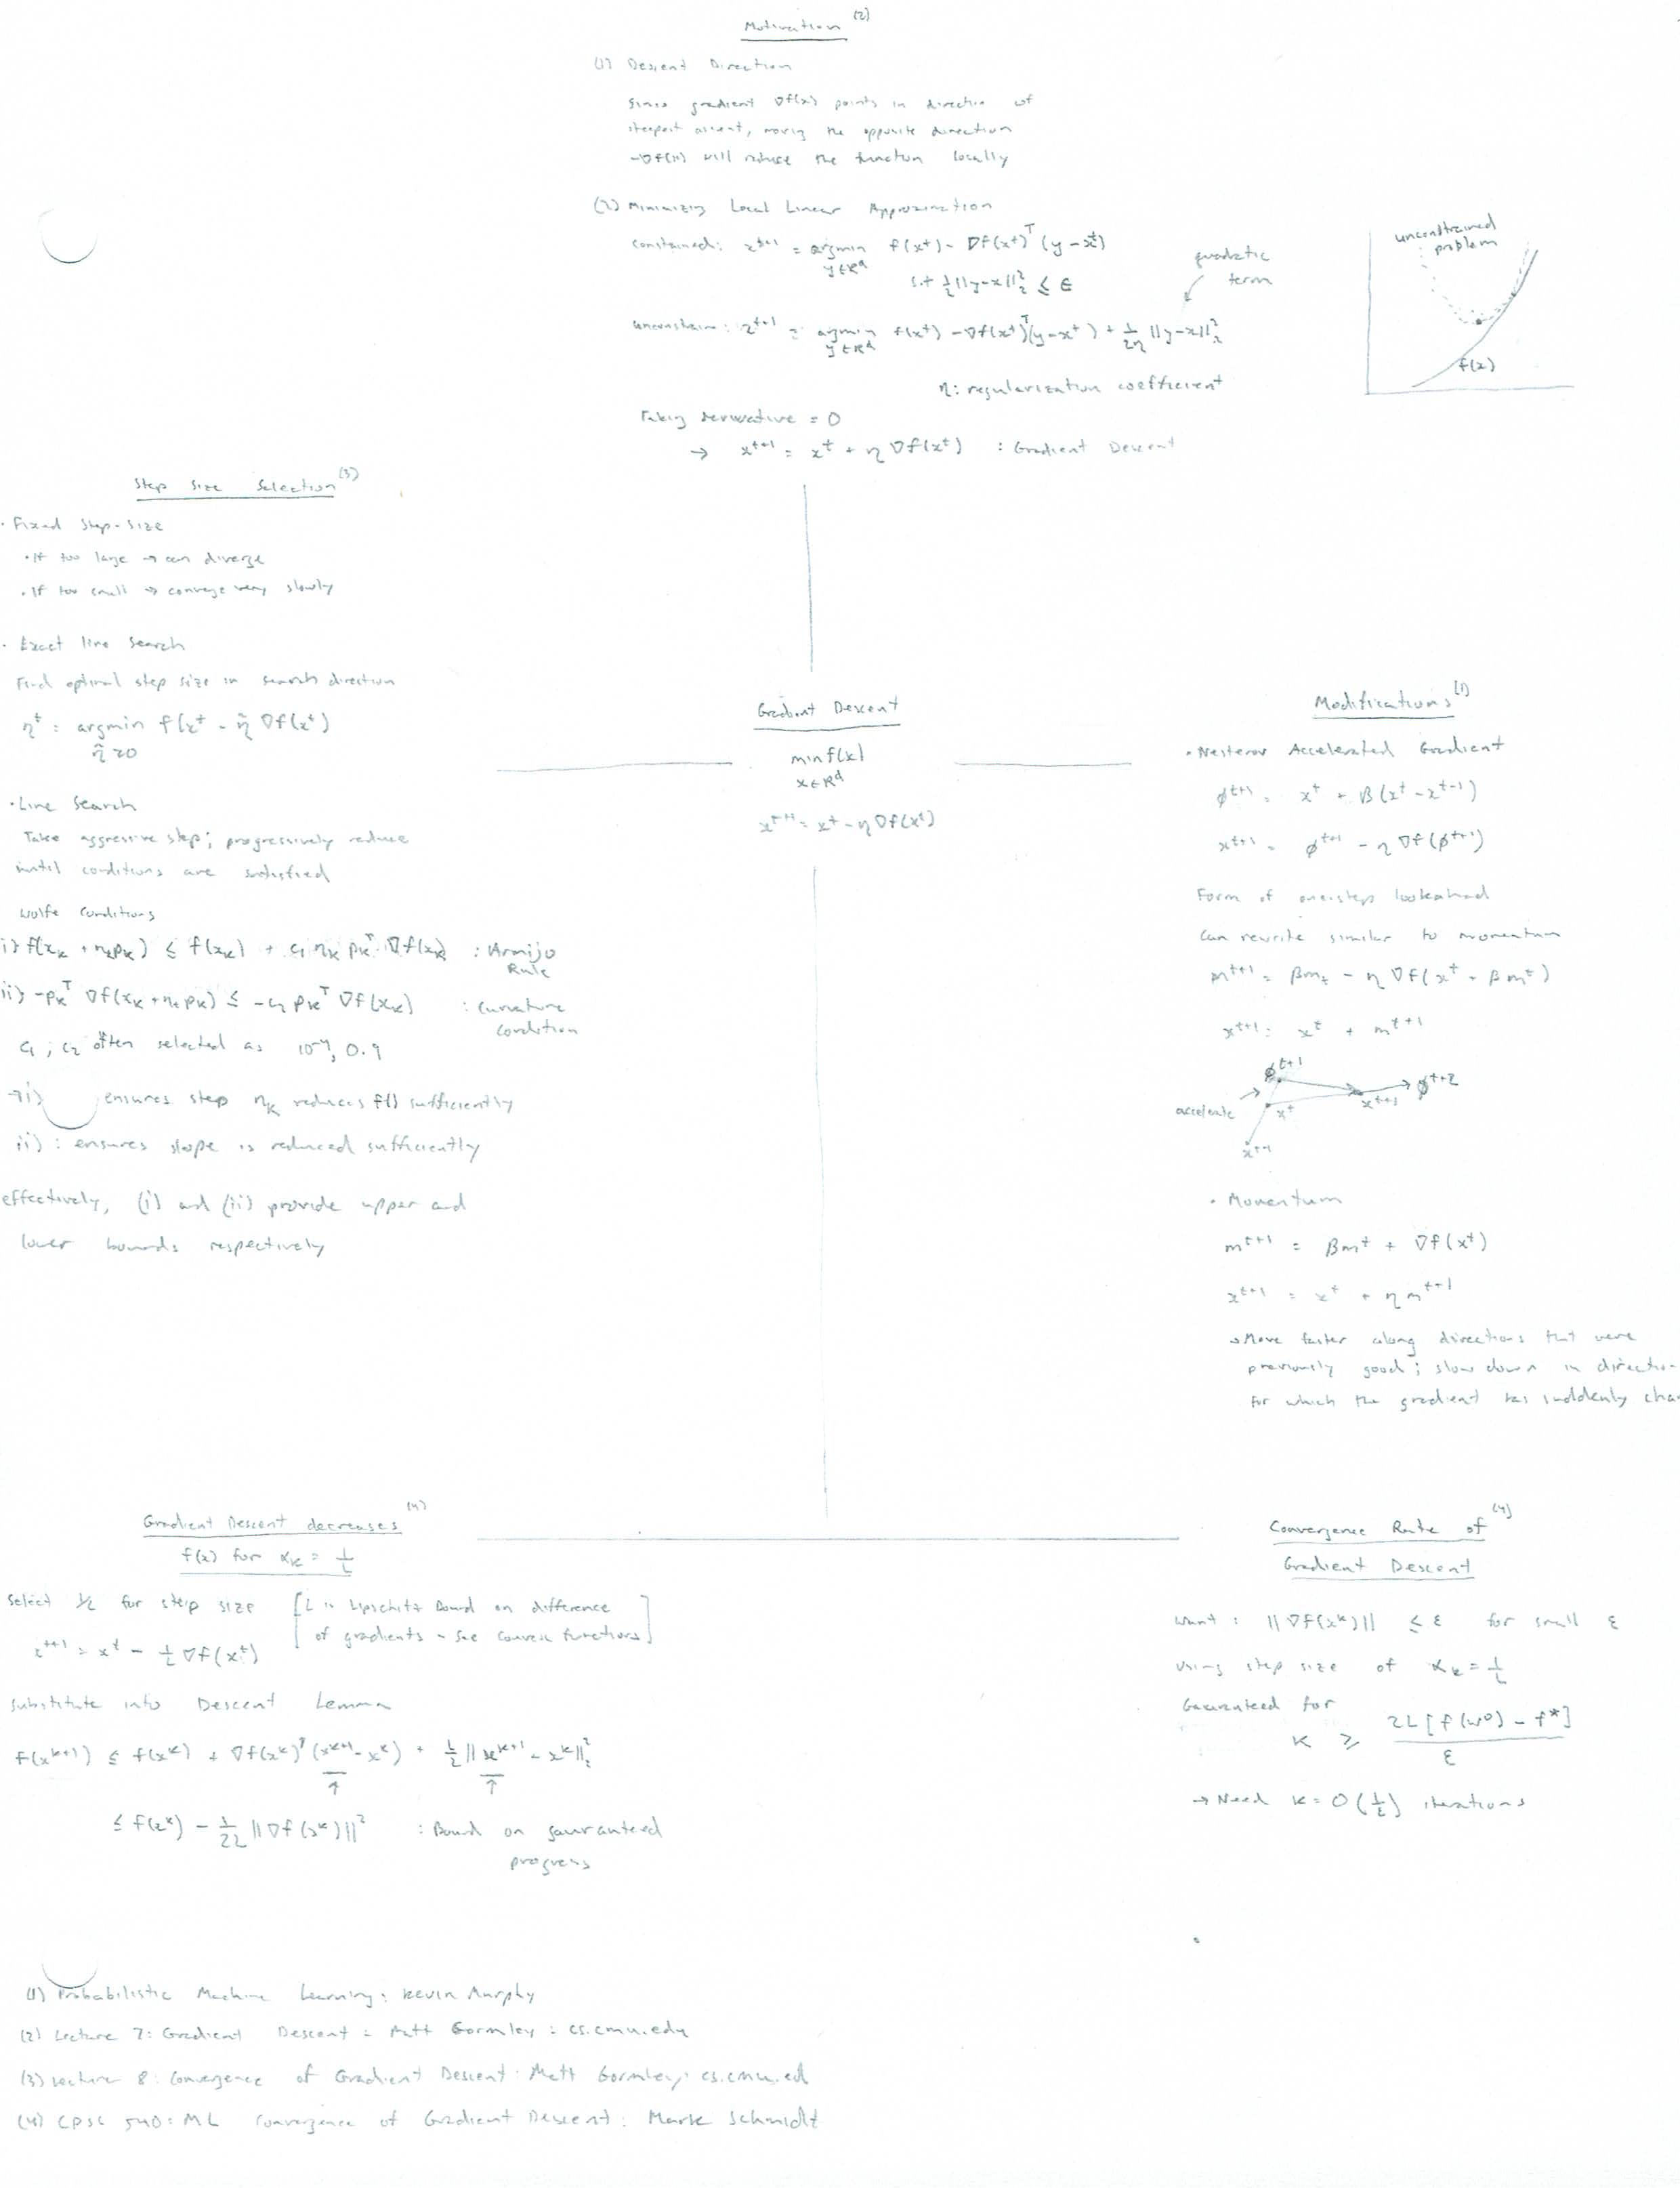 Motivation (2)
(1) Descent Direction
Since gradient ∇f(x) points in directio of
steepest ascent, moving the opposite direction
-∇f(x) will reduce the function locally
(2) Minimizing Local Linear Approximation
constained: x^{t+1} = argmin f(x^t) - ∇f(x^t)^T (y - x^t)
y∈R^d
s.t ½||y-x||₂² ≤ ϵ
quadratic
term
unconstrain: x^{t+1} = argmin f(x^t) - ∇f(x^t)^T(y-x^t) + 1/2η ||y-x||₂²
y∈R^d
η: regularization coefficient
Taking derivative = 0
→ x^{t+1} = x^t + η ∇f(x^t) : Gradient Descent
unconstrained
problem
f(x)
Step Size Selection (3)
· Fixed Step-Size
· If too large → can diverge
· If too small → converge very slowly
· Exact line search
Find optimal step size in search direction
η^t = argmin f(x^t - η̃ ∇f(x^t)
η̃ ≥0
· Line Search
Take aggressive step; progressively reduce
until conditions are satisfied
Wolfe Conditions
i) f(x_k + η_k p_k) ≤ f(x_k) + c₁ η_k p_k^T ∇f(x_k) : Armijo
Rule
ii) -p_k^T ∇f(x_k + η_k p_k) ≤ -c₂ p_k^T ∇f(x_k) : Curvature
condition
c₁, c₂ often selected as 10^-4, 0.9
→i) ensures step η_k reduces f() sufficiently
ii) : ensures slope is reduced sufficiently
effectively, (i) and (ii) provide upper and
lower bounds respectively
Gradient Descent
min f(x)
x∈R^d
x^{t+1} = x^t - η ∇f(x^t)
Modifications (1)
· Nesterov Accelerated Gradient
ϕ^{t+1} = x^t + β(x^t - x^{t-1})
x^{t+1} = ϕ^{t+1} - η ∇f(ϕ^{t+1})
Form of one-step lookahead
Can rewrite similar to momentum
m^{t+1} = βm_t - η ∇f(x^t + βm^t)
x^{t+1} = x^t + m^{t+1}
ϕ^{t+1}
ϕ^{t+2}
accelerate
x^t
x^{t+1}
x^{t-1}
· Momentum
m^{t+1} = βm^t + ∇f(x^t)
x^{t+1} = x^t + η m^{t+1}
→ Move faster along directions that were
previously good; slow down in directio
for which the gradient has suddenly cha
Gradient Descent decreases (4)
f(x) for α_k = 1/L
Select 1/L for step size [L is Lipschitz Bound on difference
of gradients - see Convex functions]
x^{t+1} = x^t - 1/L ∇f(x^t)
Substitute into Descent Lemma
f(x^{k+1}) ≤ f(x^k) + ∇f(x^k)^T (x^{k+1} - x^k) + L/2 ||x^{k+1} - x^k||₂²
↑ ↑
≤ f(x^k) - 1/2L ||∇f(x^k)||² : Bound on gauranteed
progress
Convergence Rate of (4)
Gradient Descent
Want : ||∇f(x^k)|| ≤ ε for small ε
Using step size of α_k = 1/L
Gauranteed for
K ≥ 2L[f(w⁰) - f*] / ε
→ Need K = O(1/ε) iterations
(1) Probabilistic Machine Learning: Kevin Murphy
(2) Lecture 7: Gradient Descent : Matt Gormley : cs.cmu.edu
(3) Lecture 8: Convergence of Gradient Descent : Matt Gormley: cs.cmu.ed
(4) CPSC 540: ML Convergence of Gradient Descent: Mark Schmidt